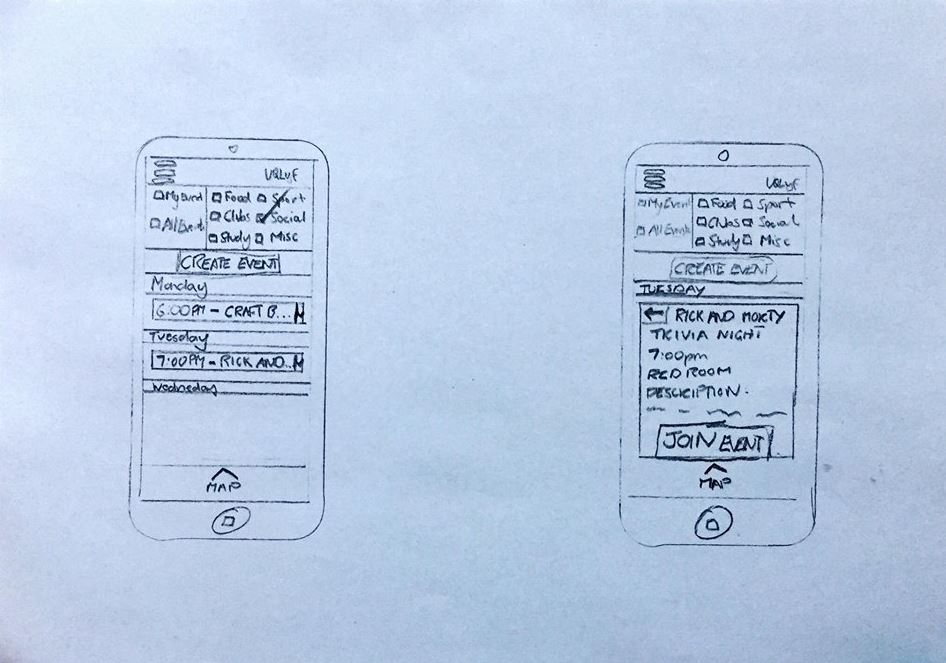 UQLyf
My Event
Food
Sport
All Event
Clubs
Social
Study
Misc
CREATE EVENT
Monday
6:00PM - CRAFT B...
Tuesday
7:00PM - RICK AND...
Wednesday
MAP
UQLyf
My Event
Food
Sport
All Event
Clubs
Social
Study
Misc
CREATE EVENT
TUESDAY
RICK AND MORTY
TRIVIA NIGHT
7:00pm
RED ROOM
DESCRIPTION.
JOIN EVENT
MAP